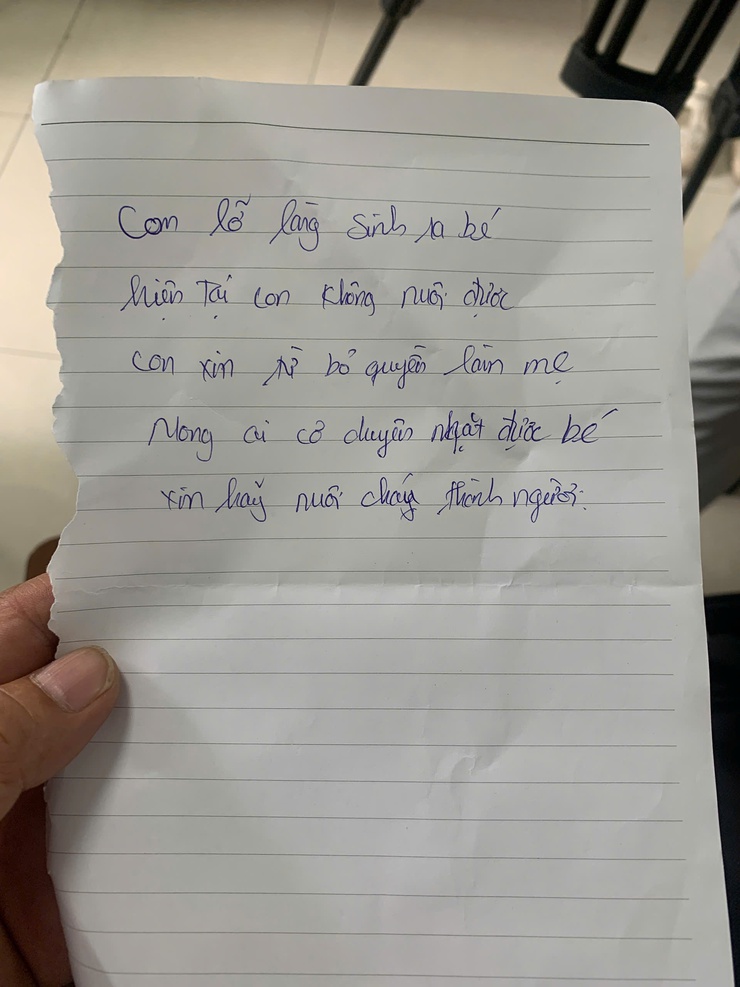 Con lỡ làng sinh ra bé
hiện tại con không nuôi được
con xin từ bỏ quyền làm mẹ
Mong ai có duyên nhặt được bé
xin hãy nuôi cháu thành người.